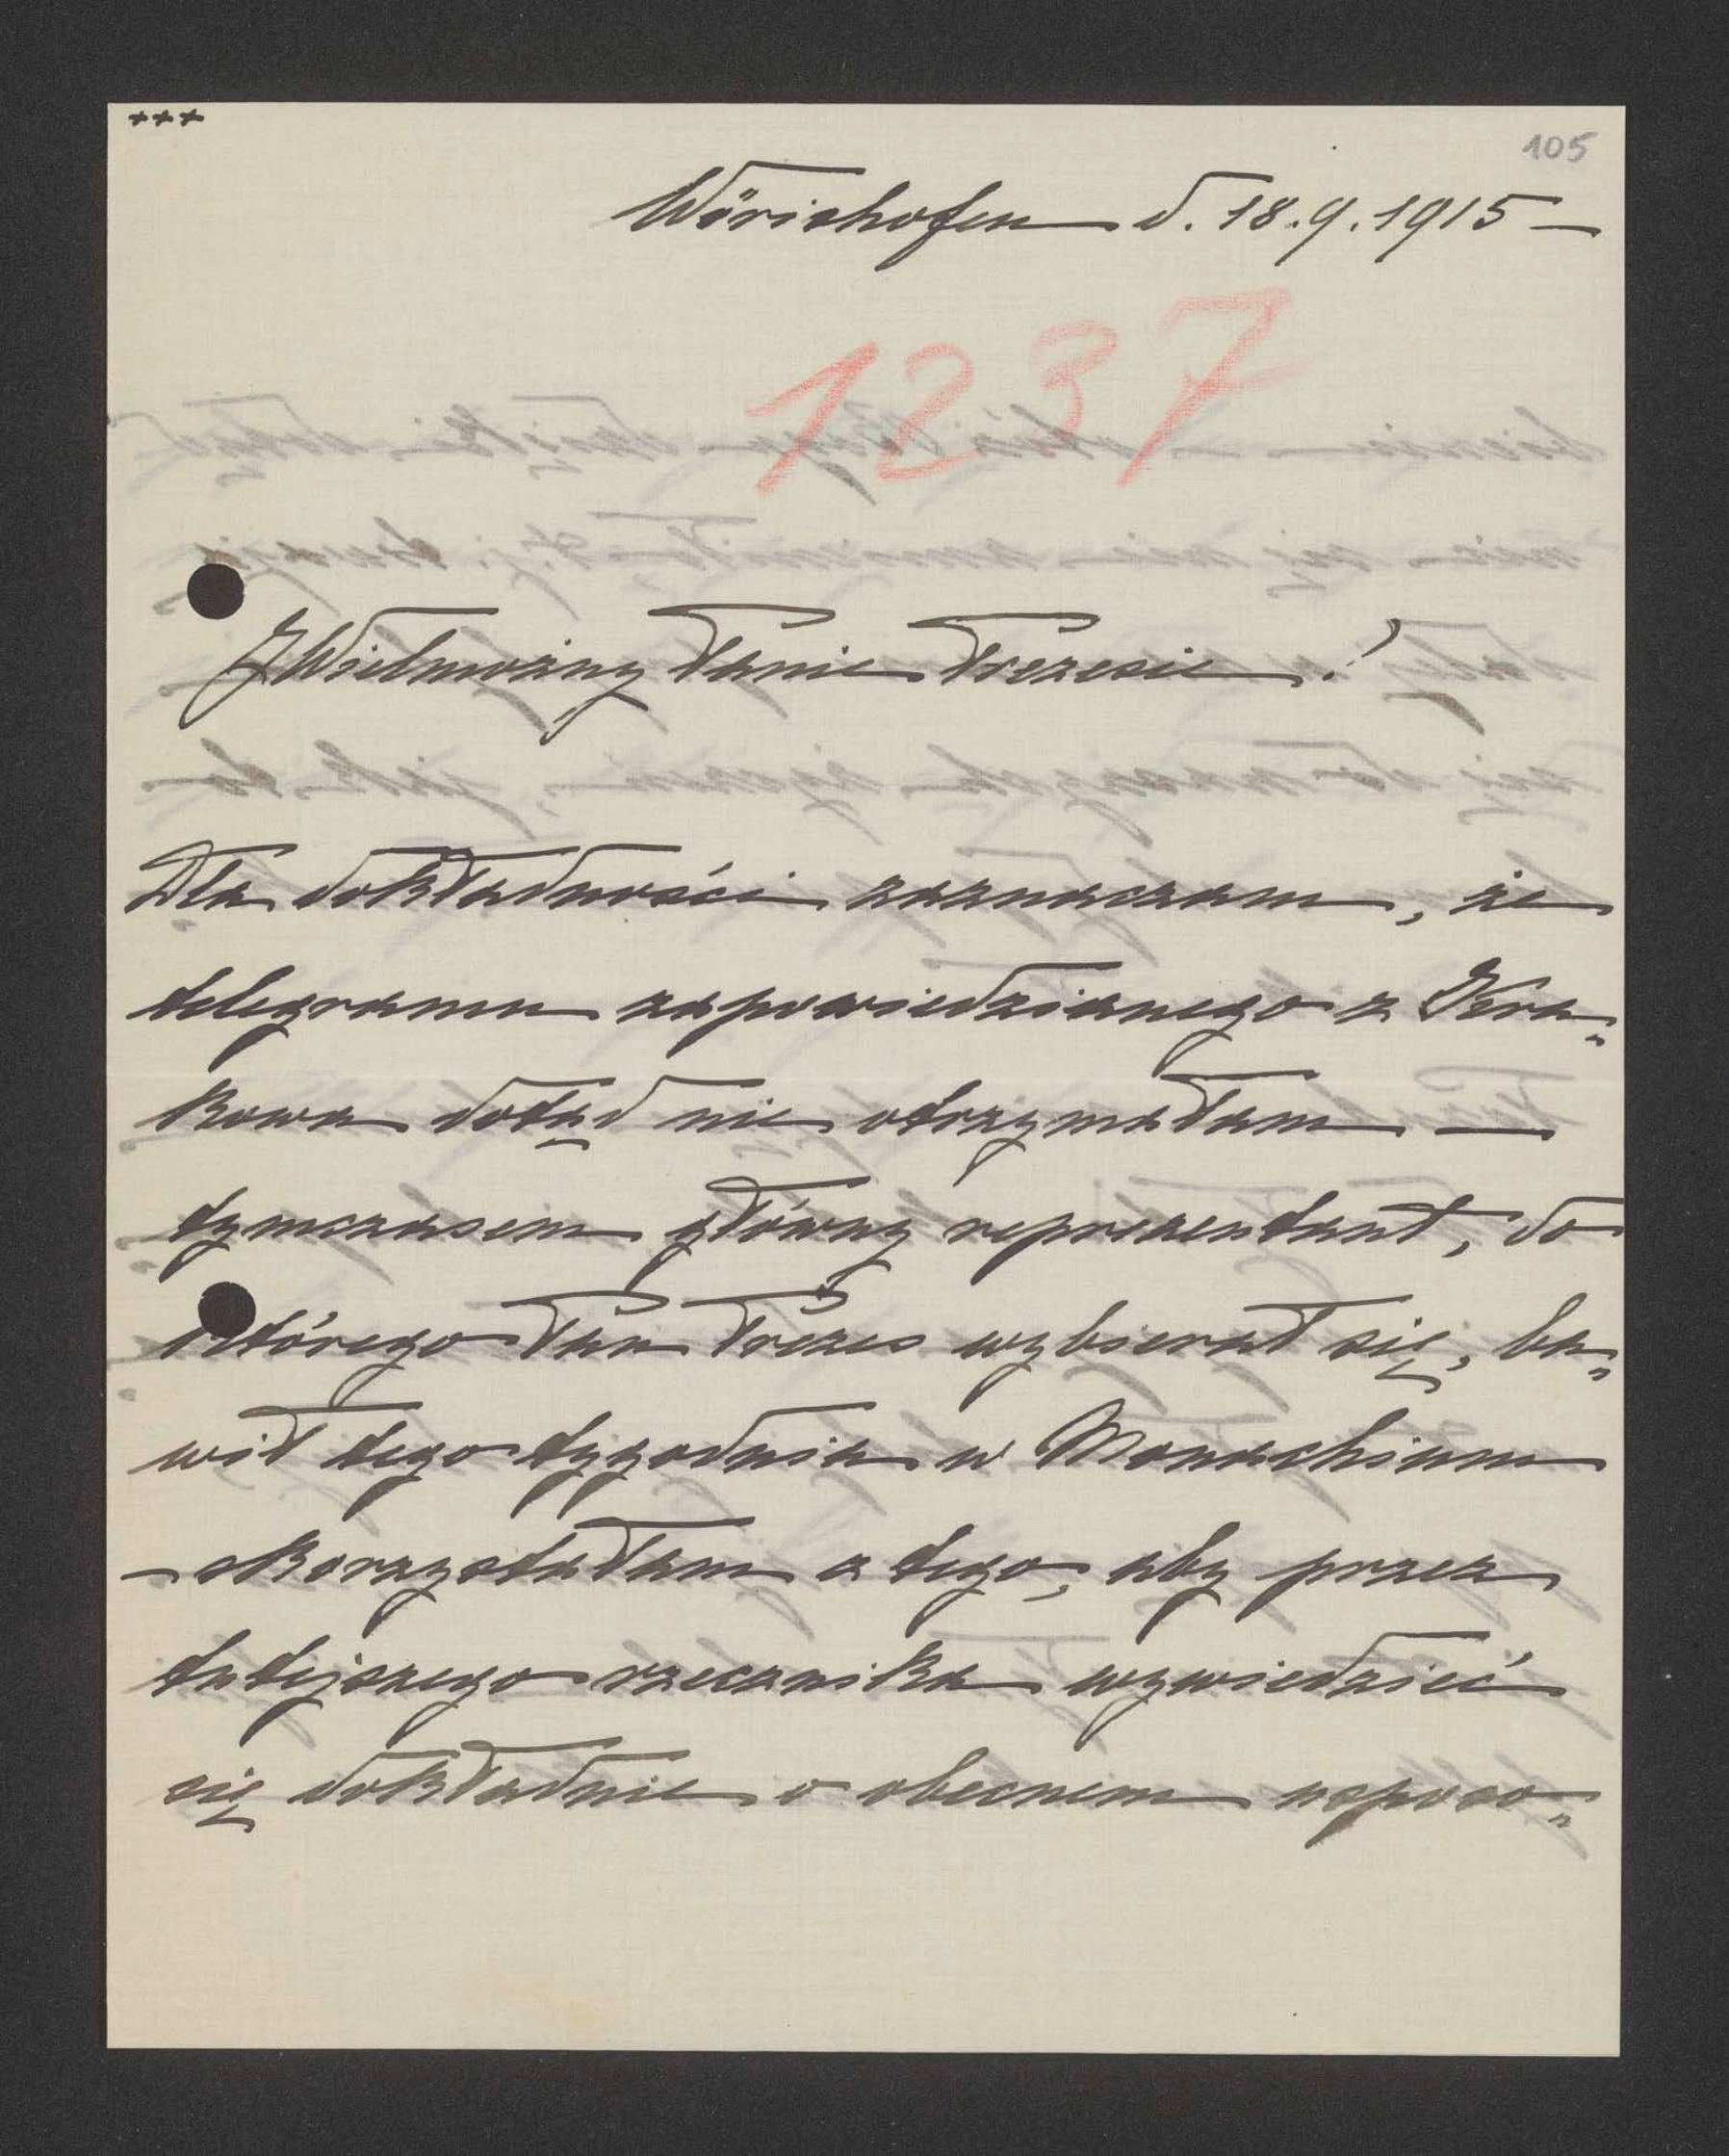 +++
105
Wörishofen d. 18.9.1915 —
1237
JWielmożny Panie Prezesie!
Dla dokładności zaznaczam, że
telegramu zapowiedzianego z Kra„
kowa dotąd nie otrzymałam —
tymczasem główny reprezentant, do
którego Pan Prezes wybierał się, ba„
wił tego tygodnia w Monachium
— skorzystałam z tego, aby przez
tutejszego rzecznika wywiedzieć
się dokładnie o obecnem usposo„